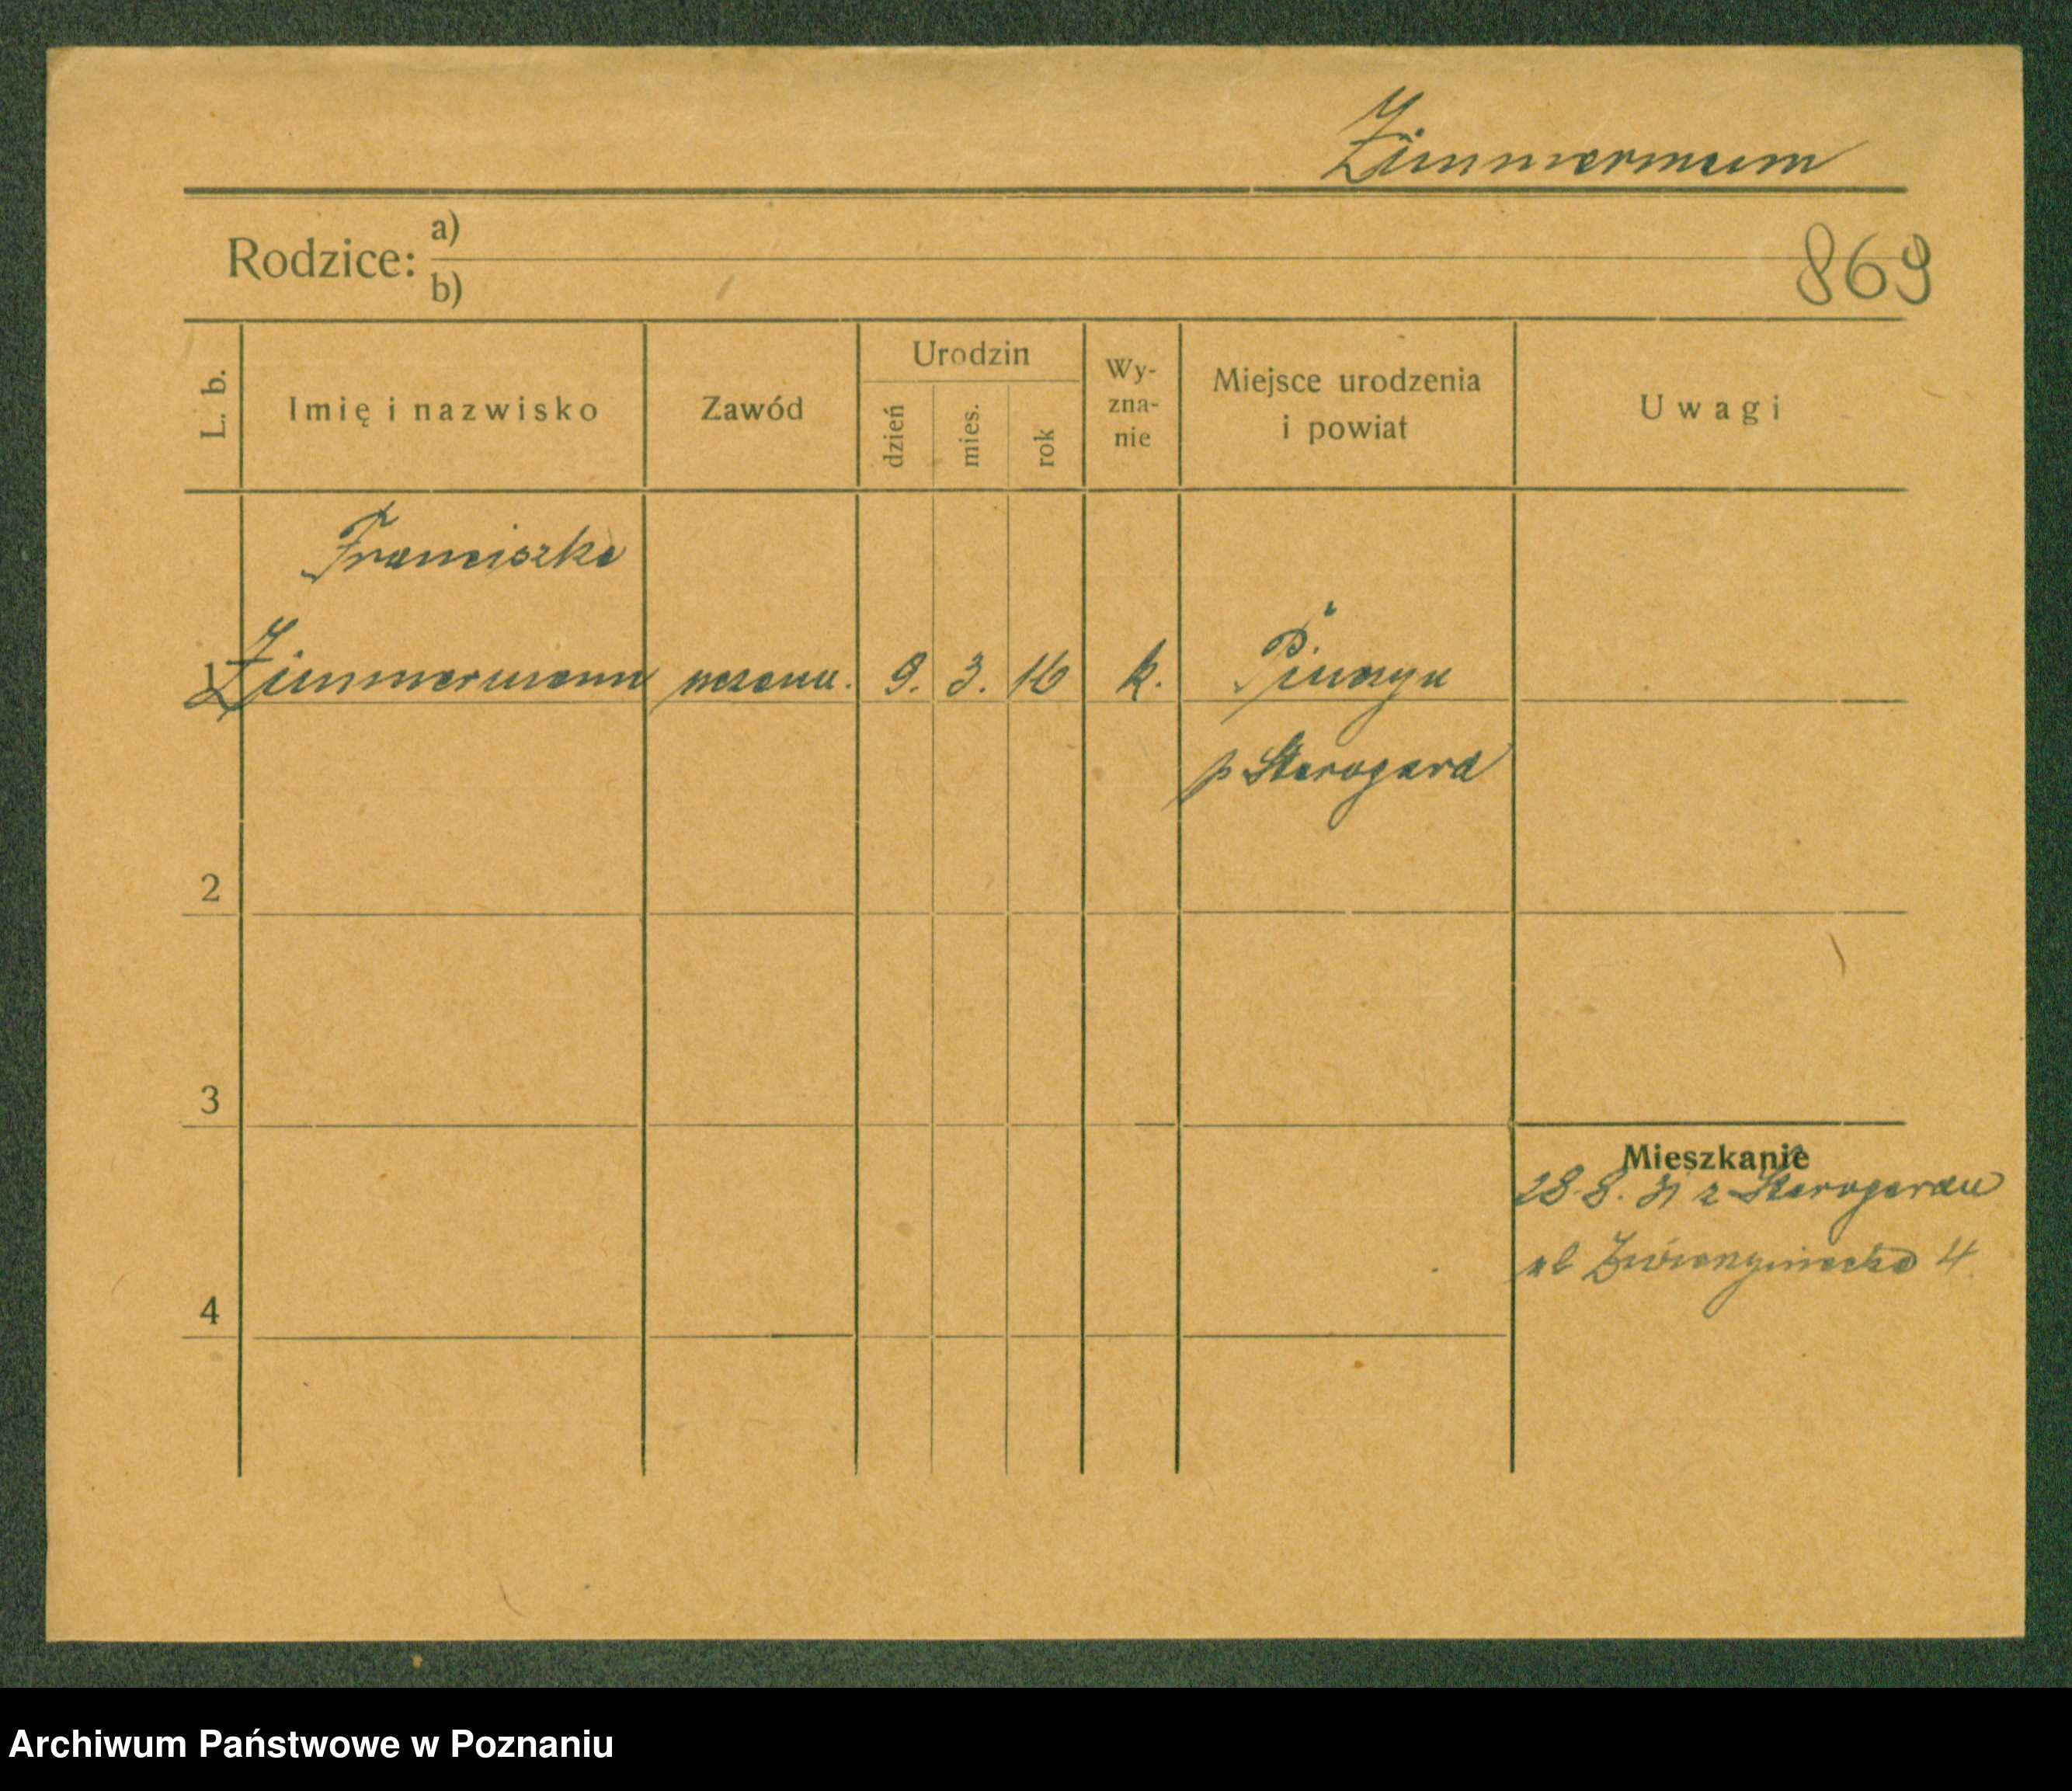 Zimmermann
Rodzice: a)
b)
869
L. b.
Imię i nazwisko
Zawód
Urodzin
dzień
mies.
rok
Wy-
zna-
nie
Miejsce urodzenia
i powiat
Uwagi
Franciszka
1 Zimmermann uczenn. 9. 3. 16 k.
p Starogard
2
3
4
Mieszkanie
28.8.31 z Starogardu
ul Zwierzyniecka 4.
Archiwum Państwowe w Poznaniu